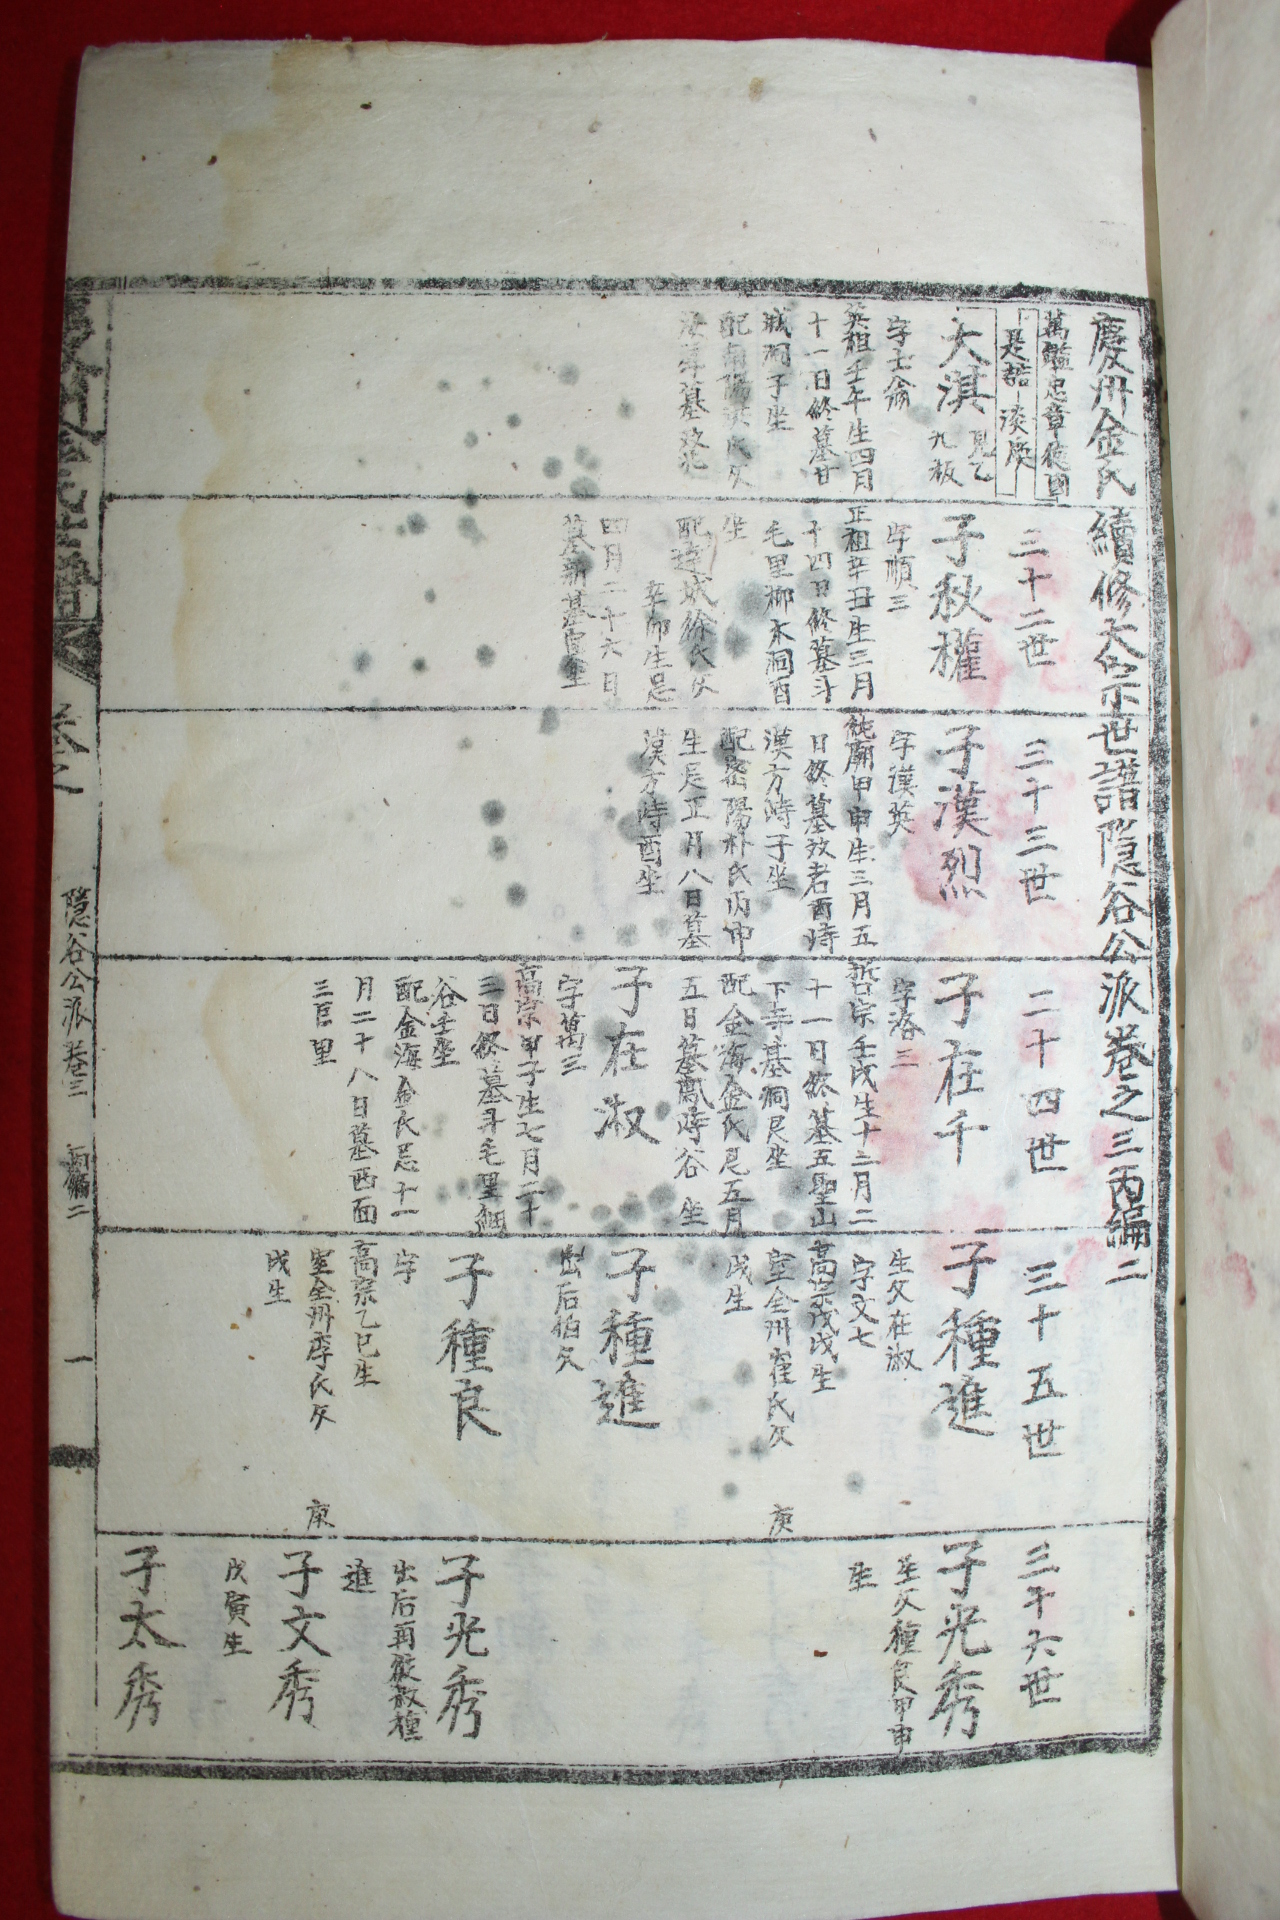 慶州金氏續修大宗世譜隱谷公派卷之三丙編二
萬鎰忠章俊國
是誥 淡煥
大淇 見乙
九板
字士龠
英祖壬午生四月
十一日終墓廿
城洞子坐
配南陽洪氏父
三十二世
子秋權
字順三
正祖辛丑生三月
十四日終墓斗
毛里柳木洞酉
坐
配達城徐氏父
辛卯生忌
四月二十六日
墓新基
三十三世
子漢烈
字漢英
純廟甲申生三月五
日終墓效君酉峙
漢方峙子坐
配密陽朴氏丙申
生忌正月八日墓
漢方峙酉坐
二十四世
子在千
字洛三
哲宗壬戌生十二月二
十一日終墓五聖山
下寺基洞艮坐
配金海金氏忌五月
五日墓鳳峙谷 坐
子在淑
字萬三
高宗甲子生七月二十
三日終墓斗毛里細
谷壬坐
配金海金氏忌十一
月二十八日墓西面
三巨里
三十五世
子種進
生父在淑
字文七
高宗戊戌生
室全州崔氏父 庚
戌生
子種進
出后伯父
子種良
字
高宗乙巳生
室全州李氏父 庚
戌生
三十六世
子光秀
生父種良甲申
生
子光秀
出后再從叔種
進
子文秀
戊寅生
子太秀
慶州金氏世譜
卷之
隱谷公派 卷三 丙編二
一